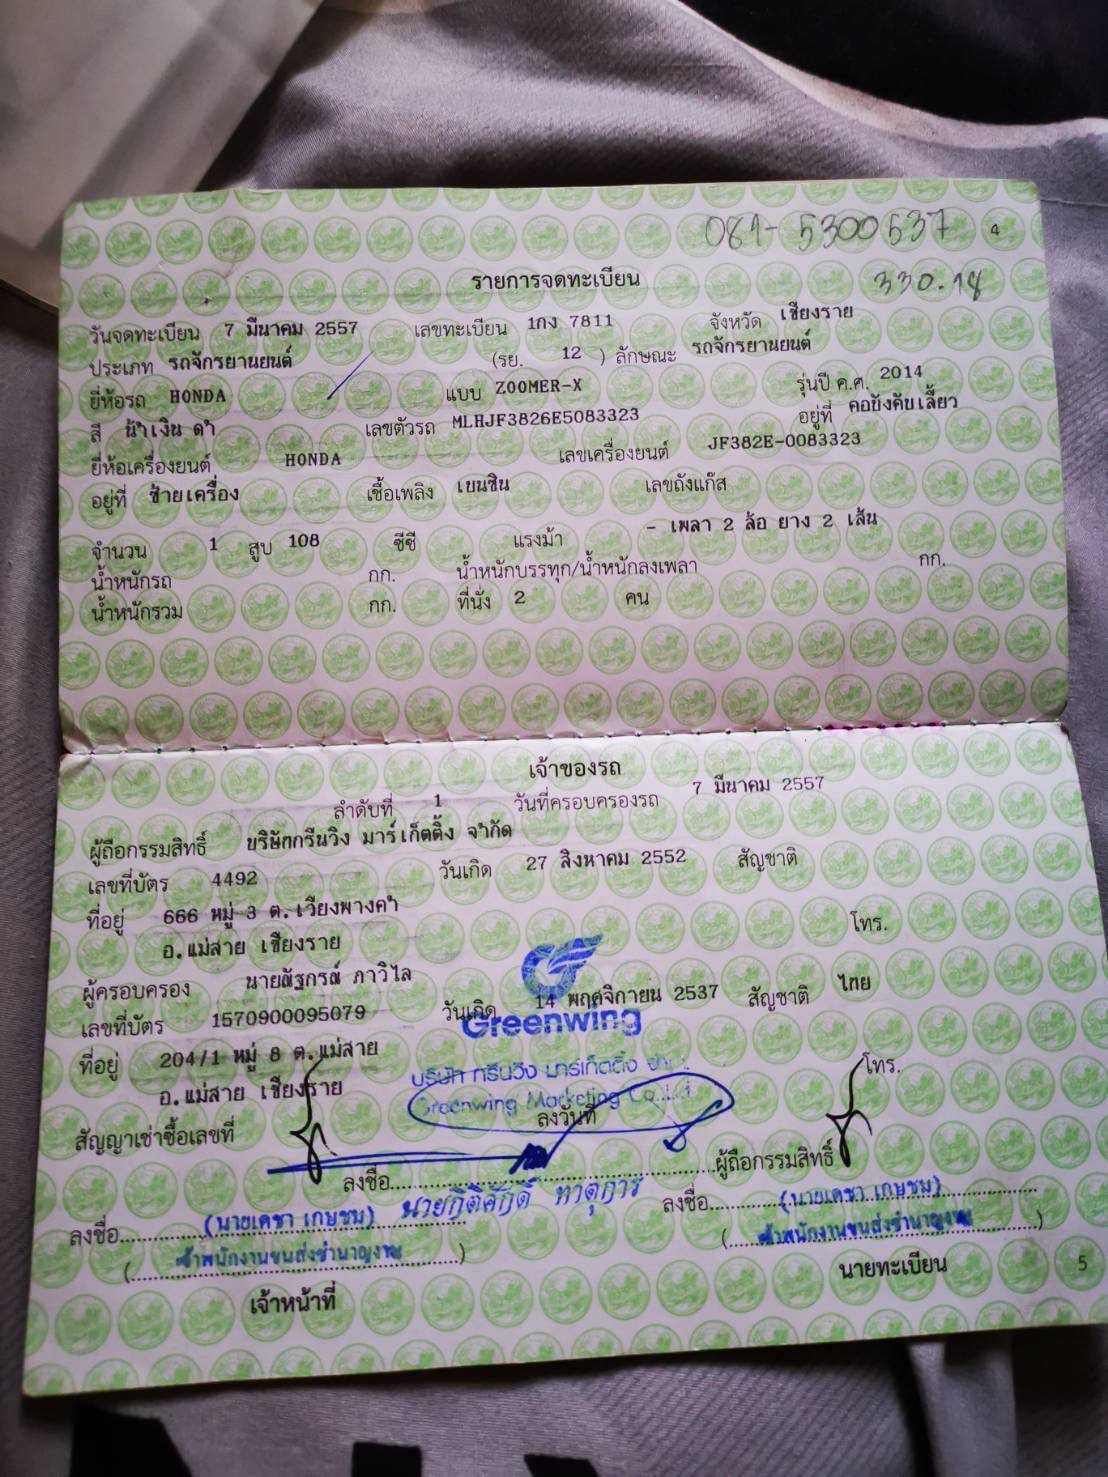 081-5300537 4
330.18
รายการจดทะเบียน
วันจดทะเบียน 7 มีนาคม 2557 เลขทะเบียน 1กง 7811 จังหวัด เชียงราย
ประเภท รถจักรยานยนต์ (รย. 12 ) ลักษณะ รถจักรยานยนต์
ยี่ห้อรถ HONDA แบบ ZOOMER-X รุ่นปี ค.ศ. 2014
สี น้ำเงิน ดำ เลขตัวรถ MLHJF3826E5083323 อยู่ที่ คอบังคับเลี้ยว
ยี่ห้อเครื่องยนต์ HONDA เลขเครื่องยนต์ JF382E-0083323
อยู่ที่ ซ้ายเครื่อง เชื้อเพลิง เบนซิน เลขถังแก๊ส
จำนวน 1 สูบ 108 ซีซี แรงม้า - เพลา 2 ล้อ ยาง 2 เส้น
น้ำหนักรถ กก. น้ำหนักบรรทุก/น้ำหนักลงเพลา กก.
น้ำหนักรวม กก. ที่นั่ง 2 คน
เจ้าของรถ
ลำดับที่ 1 วันที่ครอบครองรถ 7 มีนาคม 2557
ผู้ถือกรรมสิทธิ์ บริษัทกรีนวิง มาร์เก็ตติ้ง จำกัด
เลขที่บัตร 4492 วันเกิด 27 สิงหาคม 2552 สัญชาติ
ที่อยู่ 666 หมู่ 3 ต.เวียงพางคำ
อ.แม่สาย เชียงราย โทร.
ผู้ครอบครอง นายณัฐกรณ์ ภาวิไล
เลขที่บัตร 1570900095079 วันเกิด 14 พฤศจิกายน 2537 สัญชาติ ไทย
Greenwing
ที่อยู่ 204/1 หมู่ 8 ต.แม่สาย
บริษัท กรีนวิง มาร์เก็ตติ้ง
อ.แม่สาย เชียงราย โทร.
Greenwing Marketing Co.,Ltd
สัญญาเช่าซื้อเลขที่ ลงวันที่
ลงชื่อ ผู้ถือกรรมสิทธิ์
นายกิตติศักดิ์
ลงชื่อ (นายเดชา เกษชม) ลงชื่อ (นายเดชา เกษชม)
(เจ้าพนักงานขนส่งชำนาญงาน) (เจ้าพนักงานขนส่งชำนาญงาน)
เจ้าหน้าที่ นายทะเบียน 5